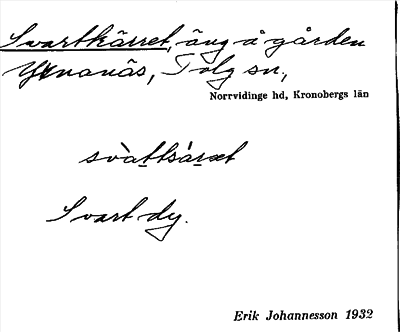 Svartkärret, äng å gården
Yxnanäs, Tolg sn.,
Norrvidinge hd, Kronobergs län
Svart dy.
Erik Johannesson 1932